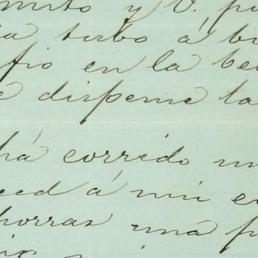 mito y V. pu
a tubo á bi
fio en la be
e dispense la
há corrido un
eed á mi e
horras una p